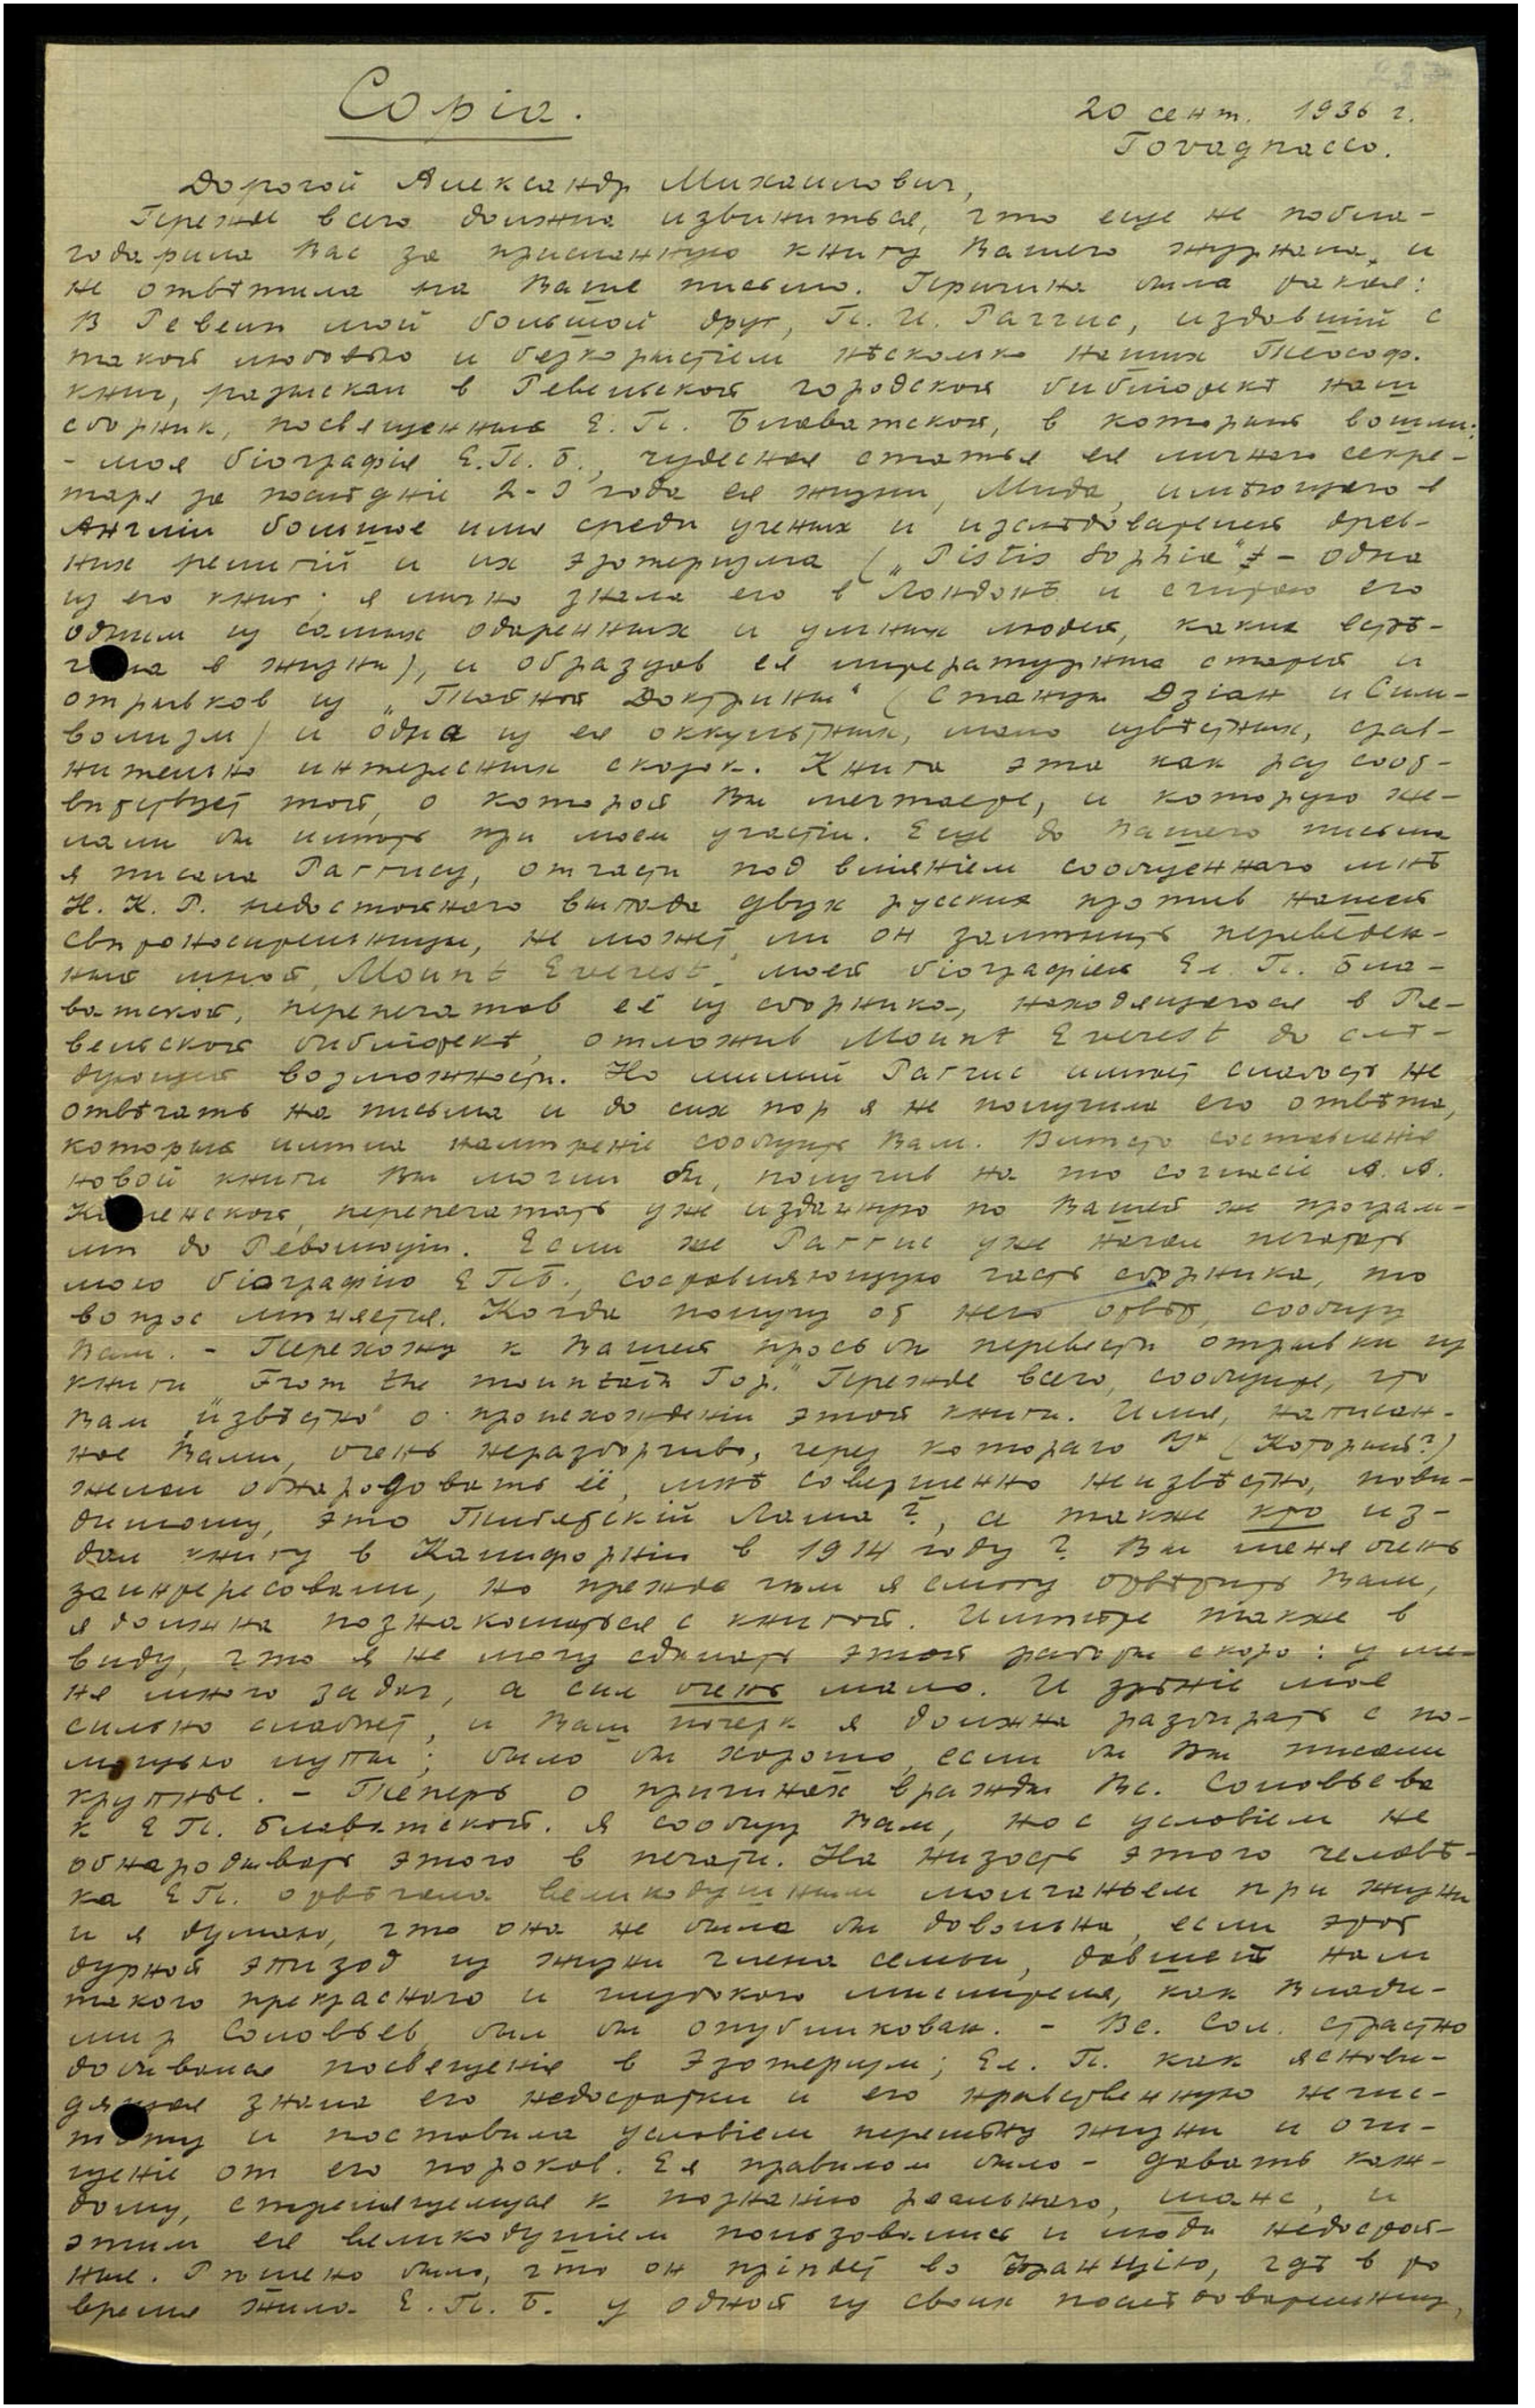 Copia.
20 сент. 1936 г.
Tovagnacco.
Дорогой Александр Михаилович,
Прежде всего должна извиниться, что еще не побла-
годарила Вас за присланную книгу Вашего журнала, и
не отвѣтила на Ваше письмо. Причина была такая:
В Ревелѣ мой большой друг, П. И. Раггис, издавшій с
такой любовью и безкорыстіем нѣсколько наших Теософ.
книг, разыскал в Ревельской городской библіотекѣ наш
сборник, посвященный Е. П. Блаватской, в который вошли:
- моя біографія Е. П. Б., чудесная статья ея личнаго секре-
таря за послѣдніе 2-3 года ея жизни, Мида, имѣющаго в
Англіи большое имя среди ученых и изслѣдователей древ-
них религій и их эзотеризма („Pistis Sophia" - одна
из его книг; я лично знала его в Лондонѣ и считаю его
одним из самых одаренных и умных людей, каких встрѣ-
чала в жизни), и образцов ея литературных статей и
отрывков из „Тайной Доктрины" (Станцы Дзіан и Сим-
волизм) и одна из ея оккультных, мало извѣстных, срав-
нительно интересных сказок. Книга эта как раз соот-
вѣтствует той, о которой Вы мечтаете, и которую же-
лали бы имѣть при моем участіи. Еще до Вашего письма
я писала Раггису, отчасти под вліяніем сообщеннаго мнѣ
Н. К. Р. недостойнаго выпада двух русских против нашей
свѣтоносительницы, не может ли он замѣнить переведен-
ный мной Mount Everest, моей біографіей Ел. П. Бла-
ватской, перепечатав её из сборника, находящегося в Ре-
вельской библіотекѣ, отложив Mount Everest до слѣ-
дующей возможности. Но милый Раггис имѣет слабость не
отвѣчать на письма и до сих пор я не получила его отвѣта,
который имѣла намѣреніе сообщить Вам. Вмѣсто составленія
новой книги Вы могли бы, получив на то согласіе А. А.
Каменской, перепечатать уже изданную по Вашей же програм-
мѣ до Революціи. Если же Раггис уже начал печатать
мою біографію Е.П.Б., составляющую часть сборника, то
вопрос мѣняется. Когда получу от него отвѣт, сообщу
Вам. - Перехожу к Вашей просьбѣ перевести отрывки из
книги „From the mountain Top." Прежде всего, сообщите, что
Вам „извѣстно" о происхожденіи этой книги. Имя, написан-
ное Вами, очень неразборчиво, через котораго У* (Который?)
желал обнародовать её, мнѣ совершенно неизвѣстно, пови-
димому, это Тибетскій Лама?, а также кто из-
дал книгу в Калифорніи в 1914 году? Вы меня очень
заинтересовали, но прежде чѣм я смогу отвѣтить Вам,
я должна познакомиться с книгой. Имѣйте также в
виду, что я не могу сдѣлать этой работы скоро: у ме-
ня много задач, а сил очень мало. И зрѣніе мое
сильно слабѣет, и Ваш почерк я должна разбирать с по-
мощью лупы; было бы хорошо, если бы Вы писали
крупнѣе. - Теперь о причинах вражды Вс. Соловьева
к Е. П. Блаватской. Я сообщу Вам, но с условіем не
обнародывать этого в печати. На низость этого человѣ-
ка Е. П. отвѣчала великодушным молчаньем при жизни
и я думаю, что она не была бы довольна, если этот
дурной эпизод из жизни члена семьи, давшей нам
такого прекраснаго и глубокаго мыслителя, как Влади-
мир Соловьев, был бы опубликован. - Вс. Сол. страстно
добивался посвященія в Эзотеризм; Ел. П. как яснови-
дящая знала его недостатки и его нравственную нечис-
тоту и поставила условіем перемѣну жизни и очи-
щеніе от его пороков. Ея правилом было - давать каж-
дому, стремящемуся к познанію реальнаго, шанс, и
этим ея великодушіем пользовались и люди недостой-
ные. Рѣшено было, что он пріѣдет во Францію, гдѣ в то
время жила Е. П. Б. у одной из своих послѣдовательниц,